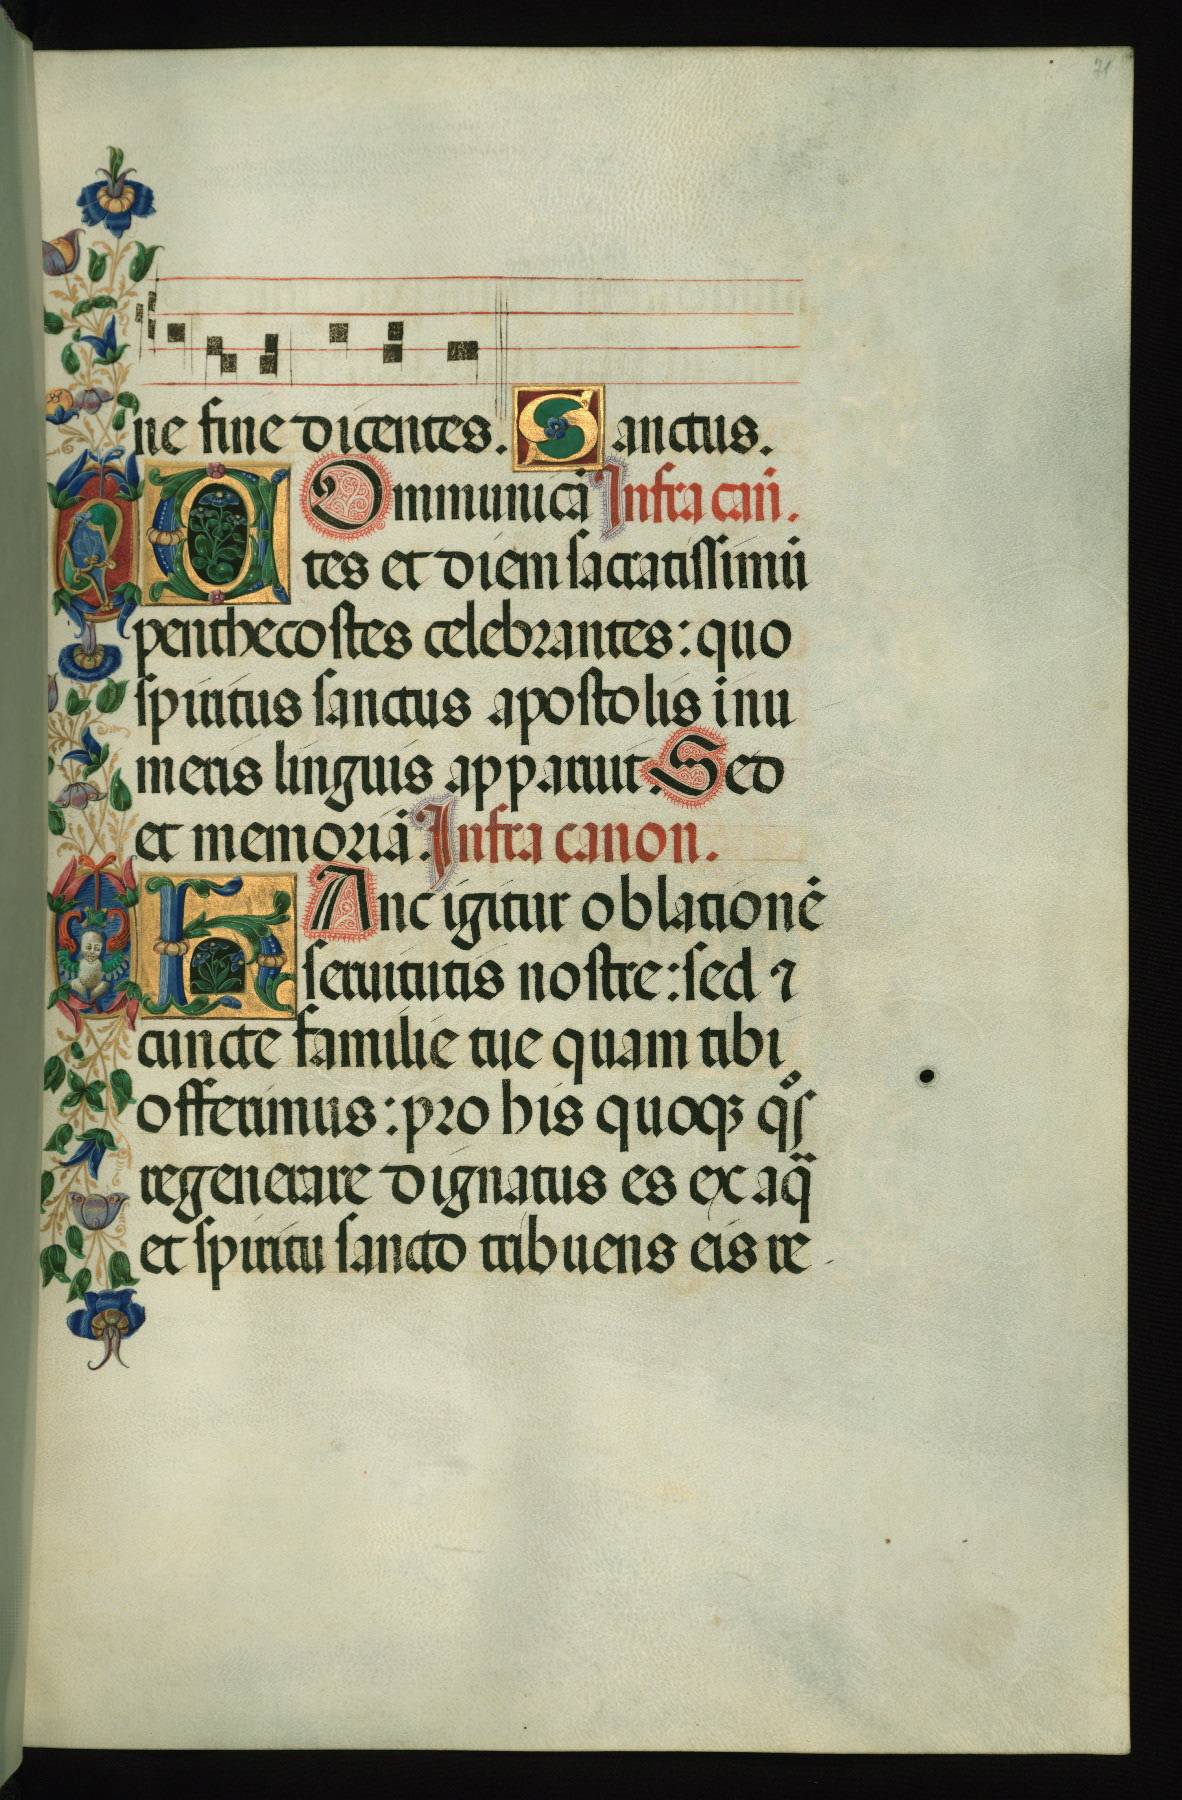 71
ne fine dicentes. Sanctus.
COmmunicā Infra can̄.
tes et diem sacratissimū
penthecostes celebrantes: quo
spiritus sanctus apostolis inu
meris linguis apparuit. Sed
et memoriā. Infra canon.
HAnc igitur oblationē
seruitutis nostre: sed ⁊
cuncte familie tue quam tibi
offerimus: pro his quoqꝫ qͦs
regenerare dignatus es ex aqᷓ
et spiritu sancto tribuens eis re